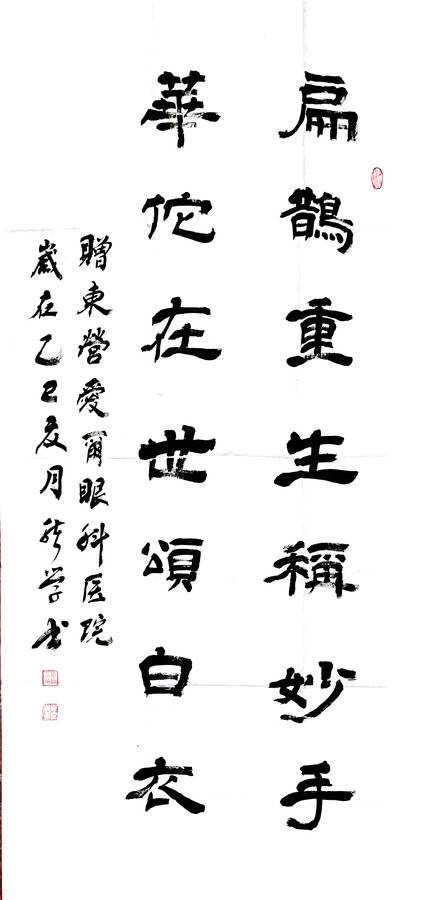 扁鵲重生稱妙手
華佗在世頌白衣
贈東營愛爾眼科医院
歲在乙巳夏月 学书